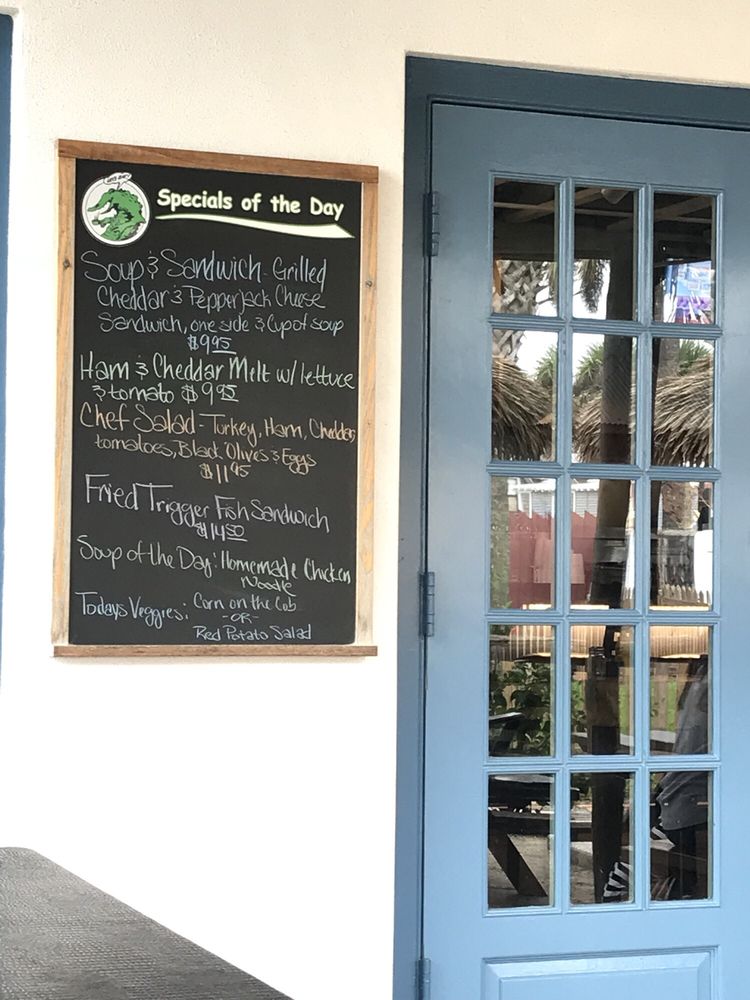 Specials of the Day
Soup & Sandwich - Grilled
Cheddar & Pepperjack Cheese
Sandwich, one side & Cup of soup
$9.95
Ham & Cheddar Melt w/ lettuce
& tomato $9.95
Chef Salad - Turkey, Ham, Cheddar,
tomatoes, Black Olives & Eggs
$11.95
Fried Trigger Fish Sandwich
$14.50
Soup of the Day: Homemade Chicken
Noodle
Todays Veggies: Corn on the Cob
-OR-
Red Potato Salad